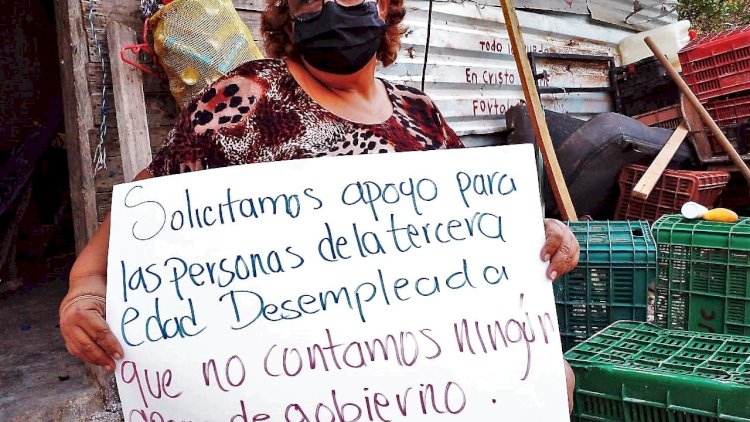 Todo lo puedo
En Cristo que me
Fortalece
Solicitamos apoyo para
las personas de la tercera
edad Desempleada
que no contamos ningún
de gobierno.